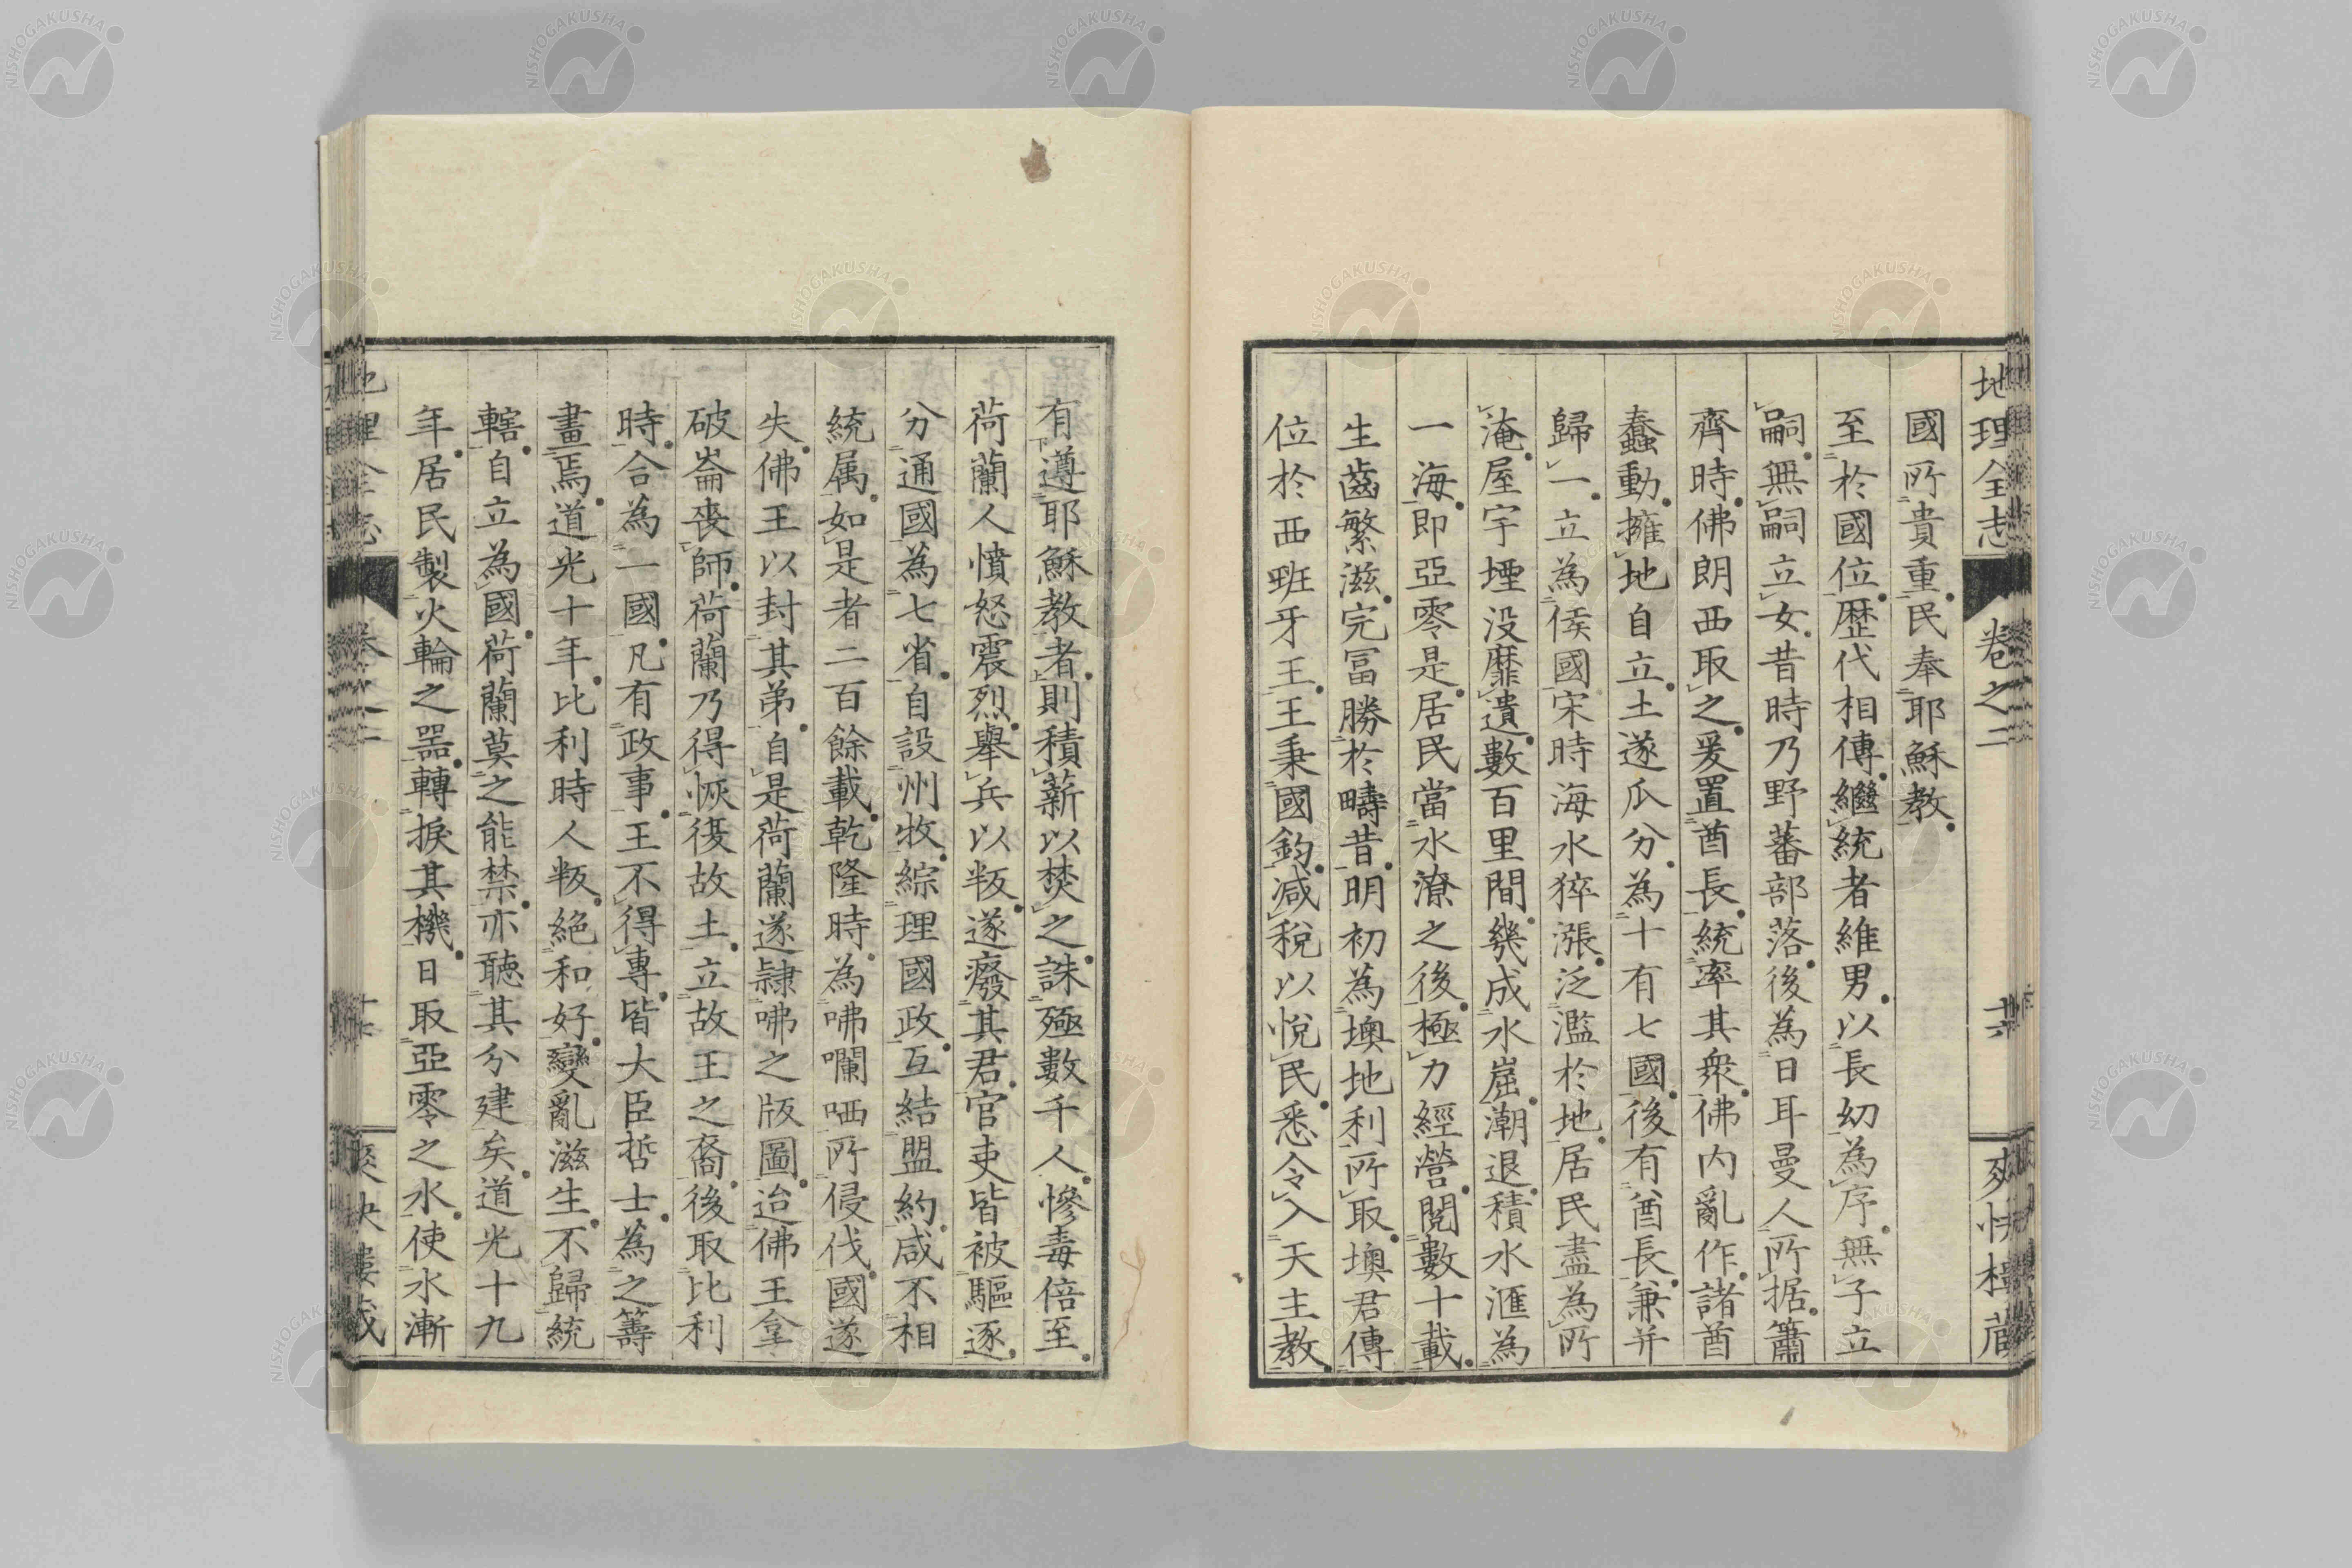 地理全志 卷之二 十六 爽快樓藏
國所貴重。民奉耶穌教。
至於國位。歷代相傳。繼統者維男。以長幼為序。無子立
嗣。無嗣立女。昔時乃野蕃部落。後為日耳曼人所据。簫
齊時。佛朗西取之。爰置酋長。統率其衆。佛內亂作。諸酋
蠢動。擁地自立。土遂瓜分。為十有七國。後有酋長。兼并
歸一。立為侯國。宋時海水猝漲。泛濫於地。居民盡為所
淹。屋宇堙没靡遺。數百里間。幾成水窟。潮退。積水滙為
一海。即亞零是。居民當水潦之後。極力經營。閱數十載。
生齒繁滋。完冨勝於疇昔。明初為墺地利所取。墺君傳
位於西班牙王。王秉國鈞。減稅以悅民。悉令入天主教。
有遵耶穌教者。則積薪以焚之。誅殛數千人。慘毒倍至。
荷蘭人憤怒震烈。舉兵以叛。遂廢其君。官吏皆被驅逐。
分通國為七省。自設州牧。綜理國政。互結盟約。咸不相
統属。如是者二百餘載。乾隆時。為咈囒哂所侵伐。國遂
失。佛王以封其弟。自是荷蘭遂隷咈之版圖。迨佛王拿
破崙喪師。荷蘭乃得恢復故土。立故王之裔。後取比利
時。合為一國。凡有政事。王不得專。皆大臣哲士。為之籌
畫焉。道光十年。比利時人叛。絕和好。變亂滋生。不歸統
轄。自立為國。荷蘭莫之能禁。亦聴其分建矣。道光十九
年。居民製火輪之器。轉捩其機。日取亞零之水。使水漸
地理全志 卷之二 爽快樓藏